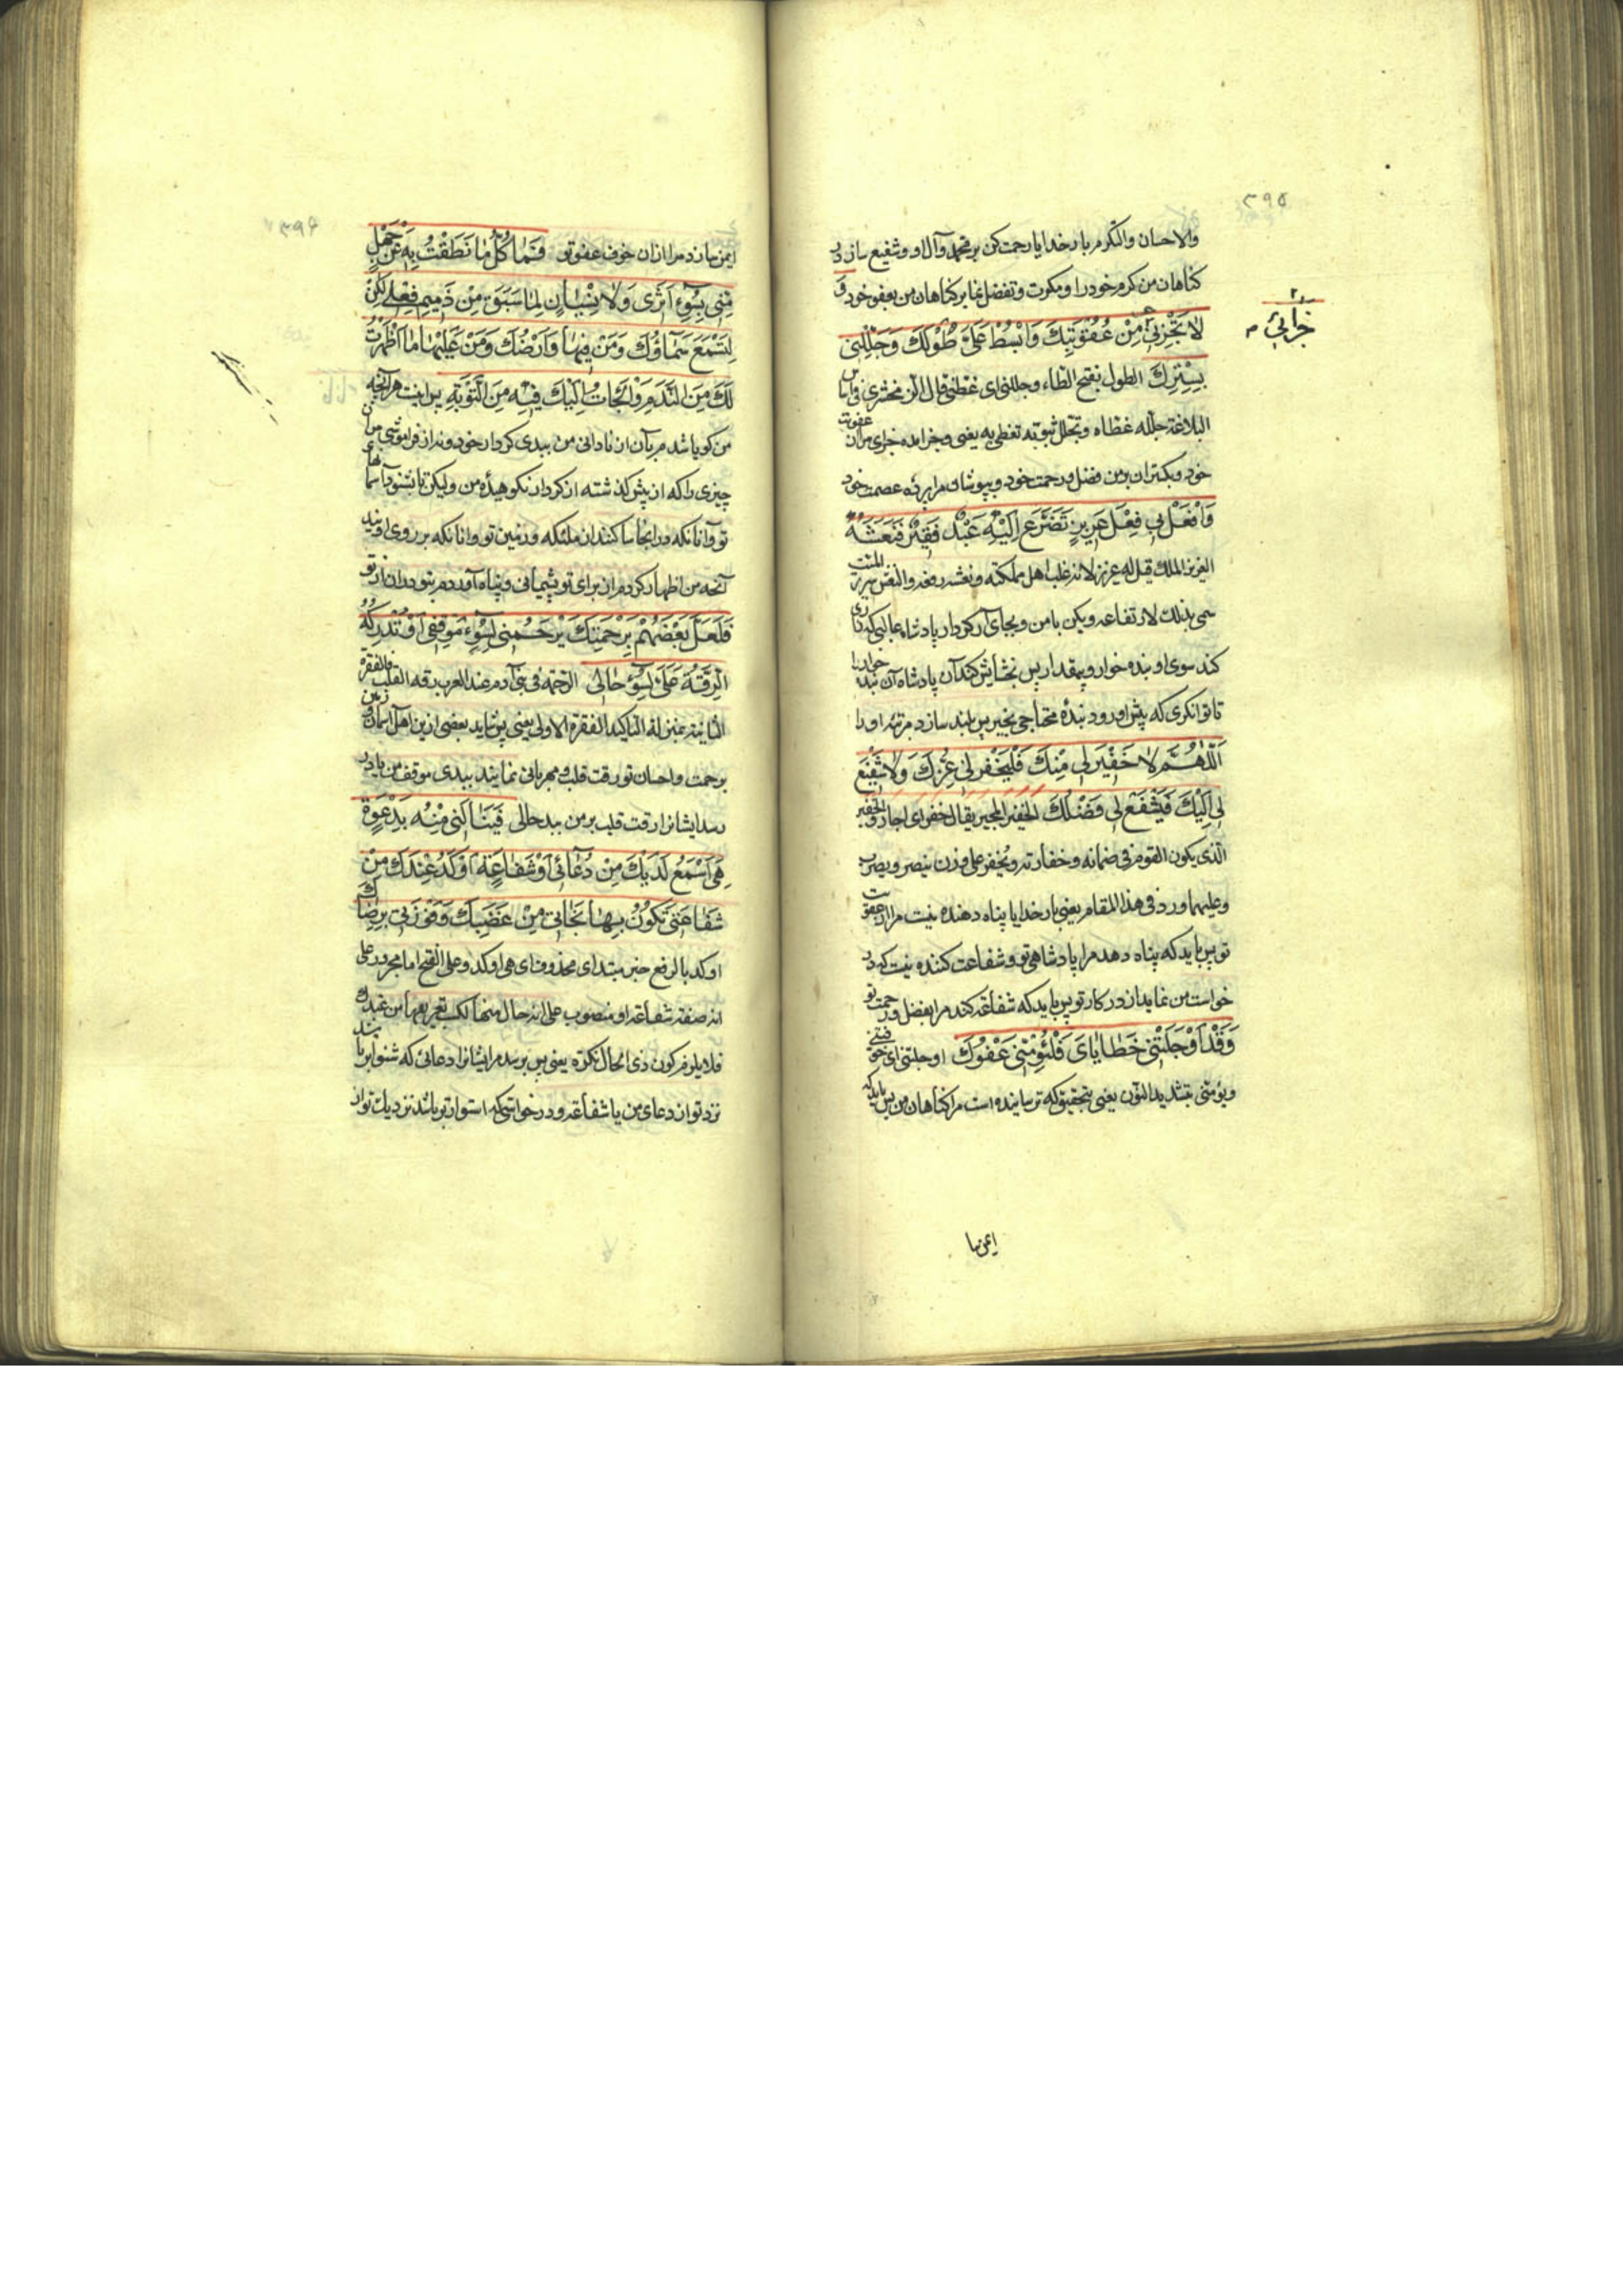 ۳۹۵
والاحسان والتکرم بار خدایا رحمت کن بر محمد و آل او و شفیع ساز در
کناهان من کرم خود را و مکرت و تفضل نما بر کناهان من بعفو خود و
لَا تَجْزِنِي مِنْ عُقُوبَتِكَ وَابْسُطْ عَلَيَّ طَوْلَكَ وَجَلِّلْنِي
جَزَائِي
بِسِتْرِكَ الطول بفتح الطاء وجللنی ای غطنی قال الزمخشری فی اساس
البلاغة جلله غطاه وتجلل بثوبه تغطی به یعنی و جزا مده جزای من از عقوبت
خود و بکستران بر من فضل و رحمت خود و بپوشان مرا بپرده عصمت خود
وَافْعَلْ بِي فِعْلَ عَزِيزٍ تَضَرَّعَ إِلَيْهِ عَبْدٌ فَقِيرٌ فَنَعَشَهُ
العزیز الملک قیل له عزیز لانه غلب اهل مملکته و نعشه رفعه والنعش سریر المیت
سمی بذلک لارتفاعه و بکن با من و بجای آر کردار پادشاه غالبی که زاری
کند سوی او بنده خوار و بیمقدار پس بخشایش کند آن پادشاه آن بنده خوار را
تا توانکری که پیش او رود بندهٔ محتاجی بخیر پس بلند سازد مرتبه او را
اَللّٰهُمَّ لَا خَفِيرَ لِي مِنْكَ فَلْيَخْفُرْنِي عِزُّكَ وَلَا شَفِيعَ
لِي إِلَيْكَ فَيَشْفَعْ لِي فَضْلُكَ الخفیر المجیر یقال خفر ای اجار والخفیر
الذی یکون القوم فی ضمانه و خفارته و یخفر علی وزن ینصر و یضرب
و علیهما ورد فی هذا المقام یعنی بار خدایا پناه دهنده نیست مرا از عقوبت
تو پس باید که پناه دهد مرا پادشاهی تو و شفاعت کننده نیست که در
خواست من نماید از در کار تو پس باید که شفاعه کند مرا بفضل و رحمت تو
وَقَدْ أَوْجَلَتْنِي خَطَايَايَ فَلْيُؤْمِنِّي عَفْوُكَ اوجلتنی ای خوفتنی
ویؤمنی بتشدید النون یعنی بتحقیق که ترسانیده است مرا کناهان من پس باید که
ایمن سا
۳۹۶
ایمن سازد مرا ازان خوف عفو تو فَمَا كُلُّ مَا نَطَقْتُ بِهِ عَنْ جَهْلٍ
مِنِّي بِسُوءِ أَثَرِي وَلَا نِسْيَانٍ لِمَا سَبَقَ مِنْ ذَمِيمِ فِعْلِي لَكِنْ
لِتَسْمَعَ سَمَاؤُكَ وَمَنْ فِيهَا وَأَرْضُكَ وَمَنْ عَلَيْهَا مَا أَظْهَرْتُ
لَكَ مِنَ النَّدَمِ وَلَجَأْتُ إِلَيْكَ فِيهِ مِنَ التَّوْبَةِ پس نیست هر آنچه
من کویا شدم بآن از نادانی من ببدی کردار خود و نه از فراموشی من
چیزی را که از پیش کذشته از کردار نکوهیدهٔ من ولیکن تا بشنود آسمانهای
تو و آنانکه در انجا ساکنند از ملئکه و زمین تو و انانکه بر روی اویند
آنچه من اظهار کردم از برای تو پشیمانی و پناه آوردم بتو دران از تو
فَلَعَلَّ بَعْضَهُمْ بِرَحْمَتِكَ يَرْحَمُنِي لِسُوءِ مَوْقِفِي أَوْ تُدْرِكُهُ
الرِّقَّةُ عَلَيَّ لِسُوءِ حَالِي الرحمة فی بنی آدم عند العرب رقة القلب فالفقرة
الثانیة بمنزله التاکید للفقرة الاولی یعنی پس شاید بعضی ازین اهل آسمان و زمین
برحمت و احسان تو رقت قلب و مهربانی نمایند ببدی موقف من یا در
رسد ایشانرا رقت قلب بر من ببد حالی فَيَنَالَنِي مِنْهُ بِدَعْوَةٍ
هِيَ أَسْمَعُ لَدَيْكَ مِنْ دُعَائِي أَوْ شَفَاعَةٍ أَوْكَدُ عِنْدَكَ مِنْ
شَفَاعَتِي تَكُونُ بِهَا نَجَاتِي مِنْ غَضَبِكَ وَفَوْزَتِي بِرِضَاكَ
اوکد بالرفع خبر مبتدای محذوف ای هی اوکد و علی الفتح اما مجرور علی
انه صفة شفاعة او منصوب علی انه حال منها
فلا یلزم کون ذی الحال نکرة یعنی پس برسد مرا ایشانرا دعائی که شنواتر باشد
نزد تو از دعای من یا شفاعه و درخواستی که استوارتر باشد نزدیک تو از